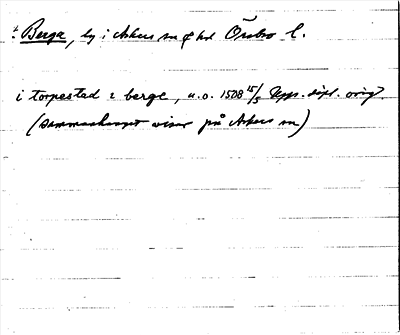 t. Berga, by i Askers sn o hd Örebro l.
i torpested i berge, u.o. 1508 15/5 Upps. dipl. orig.
(Sammanhanget visar på Askers sn)